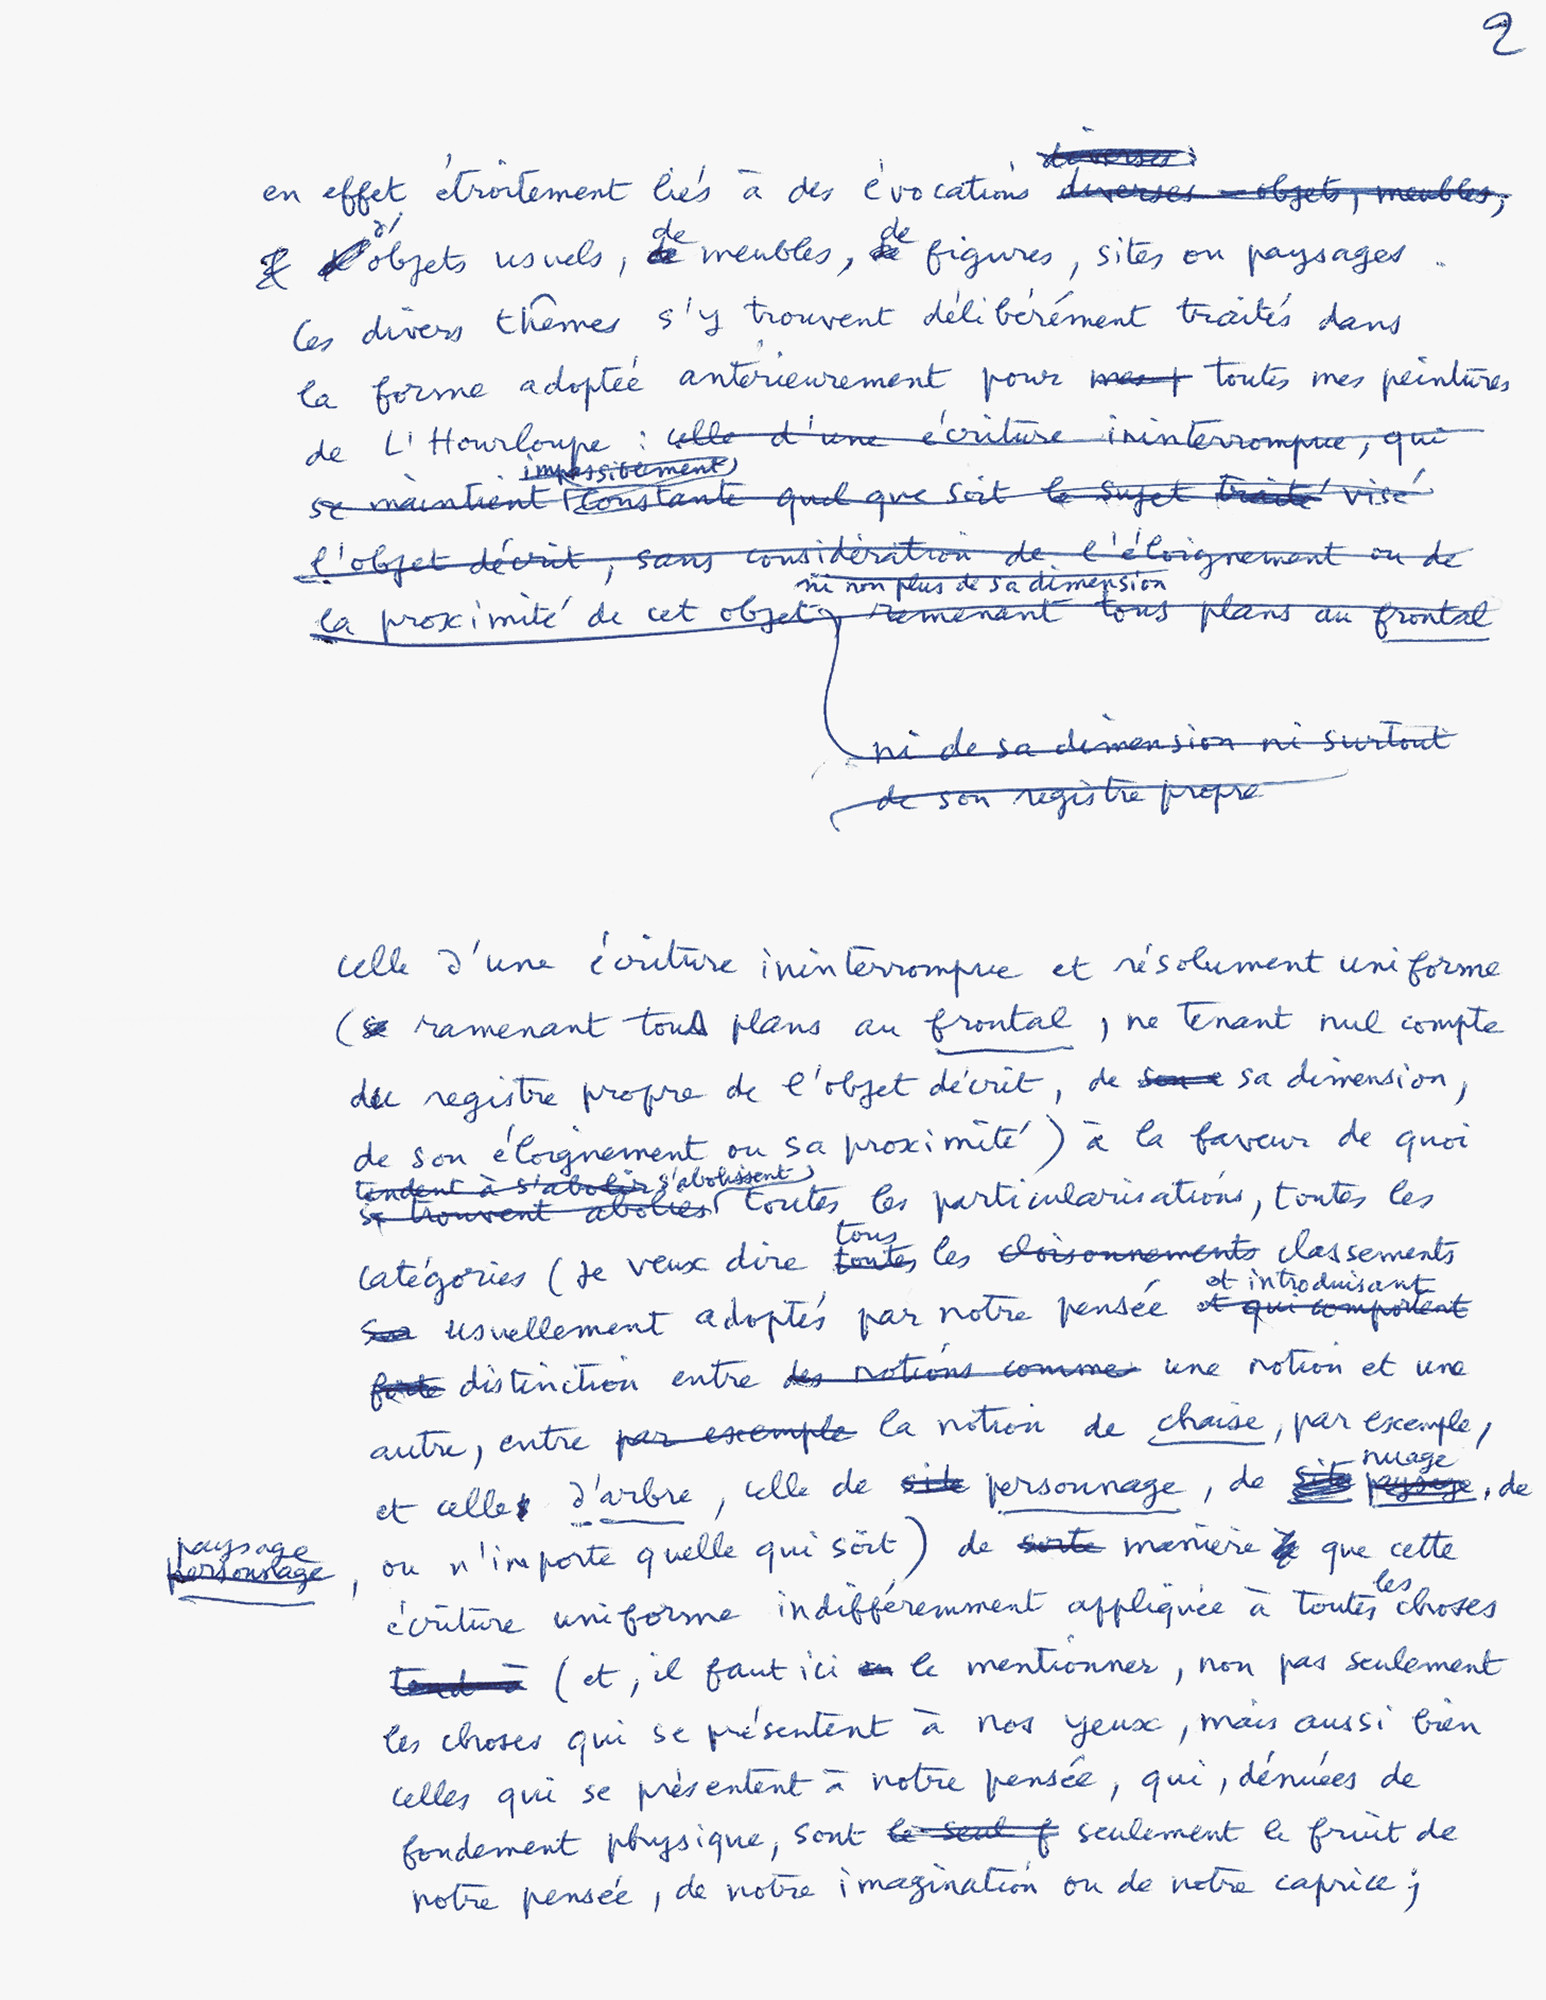 2
diverses :
en effet étroitement liés à des évocations diverses – objets, meubles,
d'objets usuels, de meubles, de figures, sites ou paysages.
Ces divers thèmes s'y trouvent délibérément traités dans
la forme adoptée antérieurement pour mes toutes mes peintures
de L'Hourloupe : celle d'une écriture ininterrompue, qui
impassiblement
se maintient constante quel que soit le sujet traité visé
l'objet décrit, sans considération de l'éloignement ou de
ni non plus de sa dimension
la proximité de cet objet, ramenant tous plans au frontal
ni de sa dimension ni surtout
de son registre propre
celle d'une écriture ininterrompue et résolument uniforme
(se ramenant tous plans au frontal, ne tenant nul compte
du registre propre de l'objet décrit, de son sa dimension,
de son éloignement ou sa proximité) à la faveur de quoi
tendent à s'abolir s'abolissent
se trouvent abolies toutes les particularisations, toutes les
tous
catégories (je veux dire toutes les cloisonnements classements
et introduisant
usuellement adoptés par notre pensée et qui comportent
distinction entre des notions comme une notion et une
autre, entre par exemple la notion de chaise, par exemple,
nuage
et celle d'arbre, celle de site personnage, de site paysage, de
paysage
personnage, ou n'importe quelle qui soit) de sorte manière que cette
les
écriture uniforme indifféremment appliquée à toutes choses
tend à (et, il faut ici en le mentionner, non pas seulement
les choses qui se présentent à nos yeux, mais aussi bien
celles qui se présentent à notre pensée, qui, dénuées de
fondement physique, sont le seul f seulement le fruit de
notre pensée, de notre imagination ou de notre caprice;